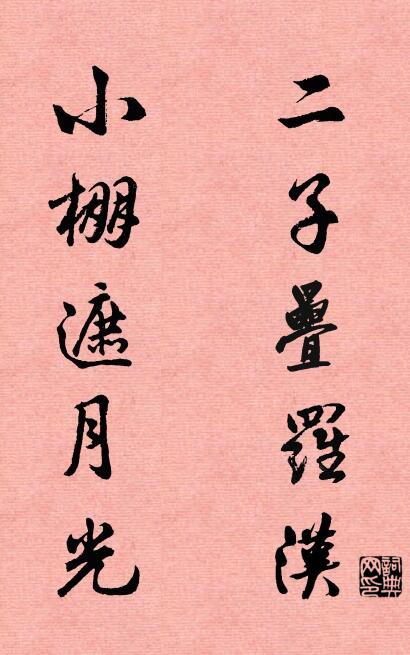 二子疊羅漢
小棚遮月光
詞典網印